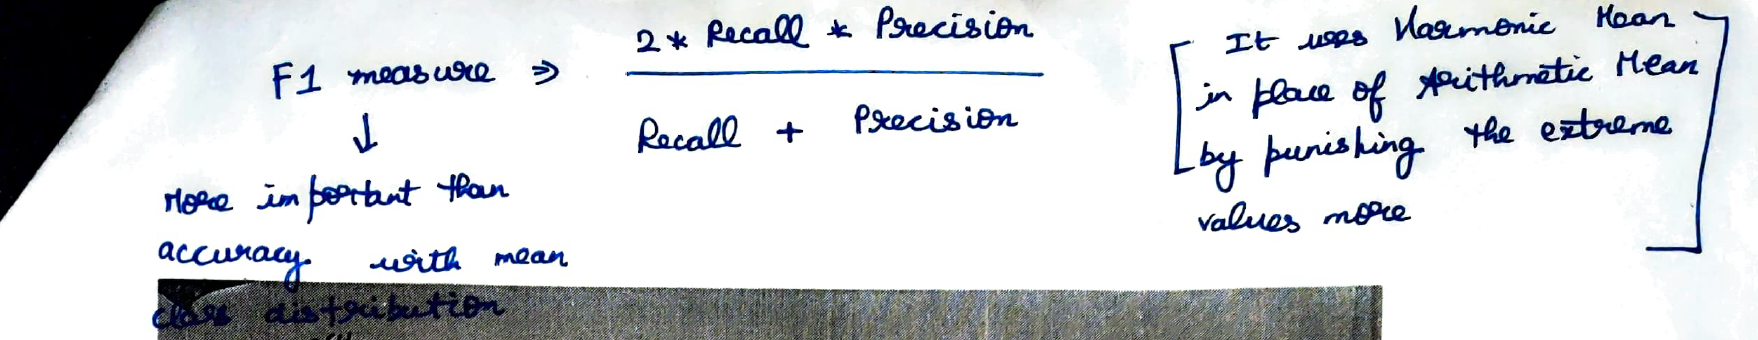 F1 measure ⇒ 2 * Recall * Precision / Recall + Precision
↓
More important than
accuracy. with mean
class distribution
[ It uses Harmonic Mean
in place of Arithmetic Mean
by punishing the extreme
values more ]